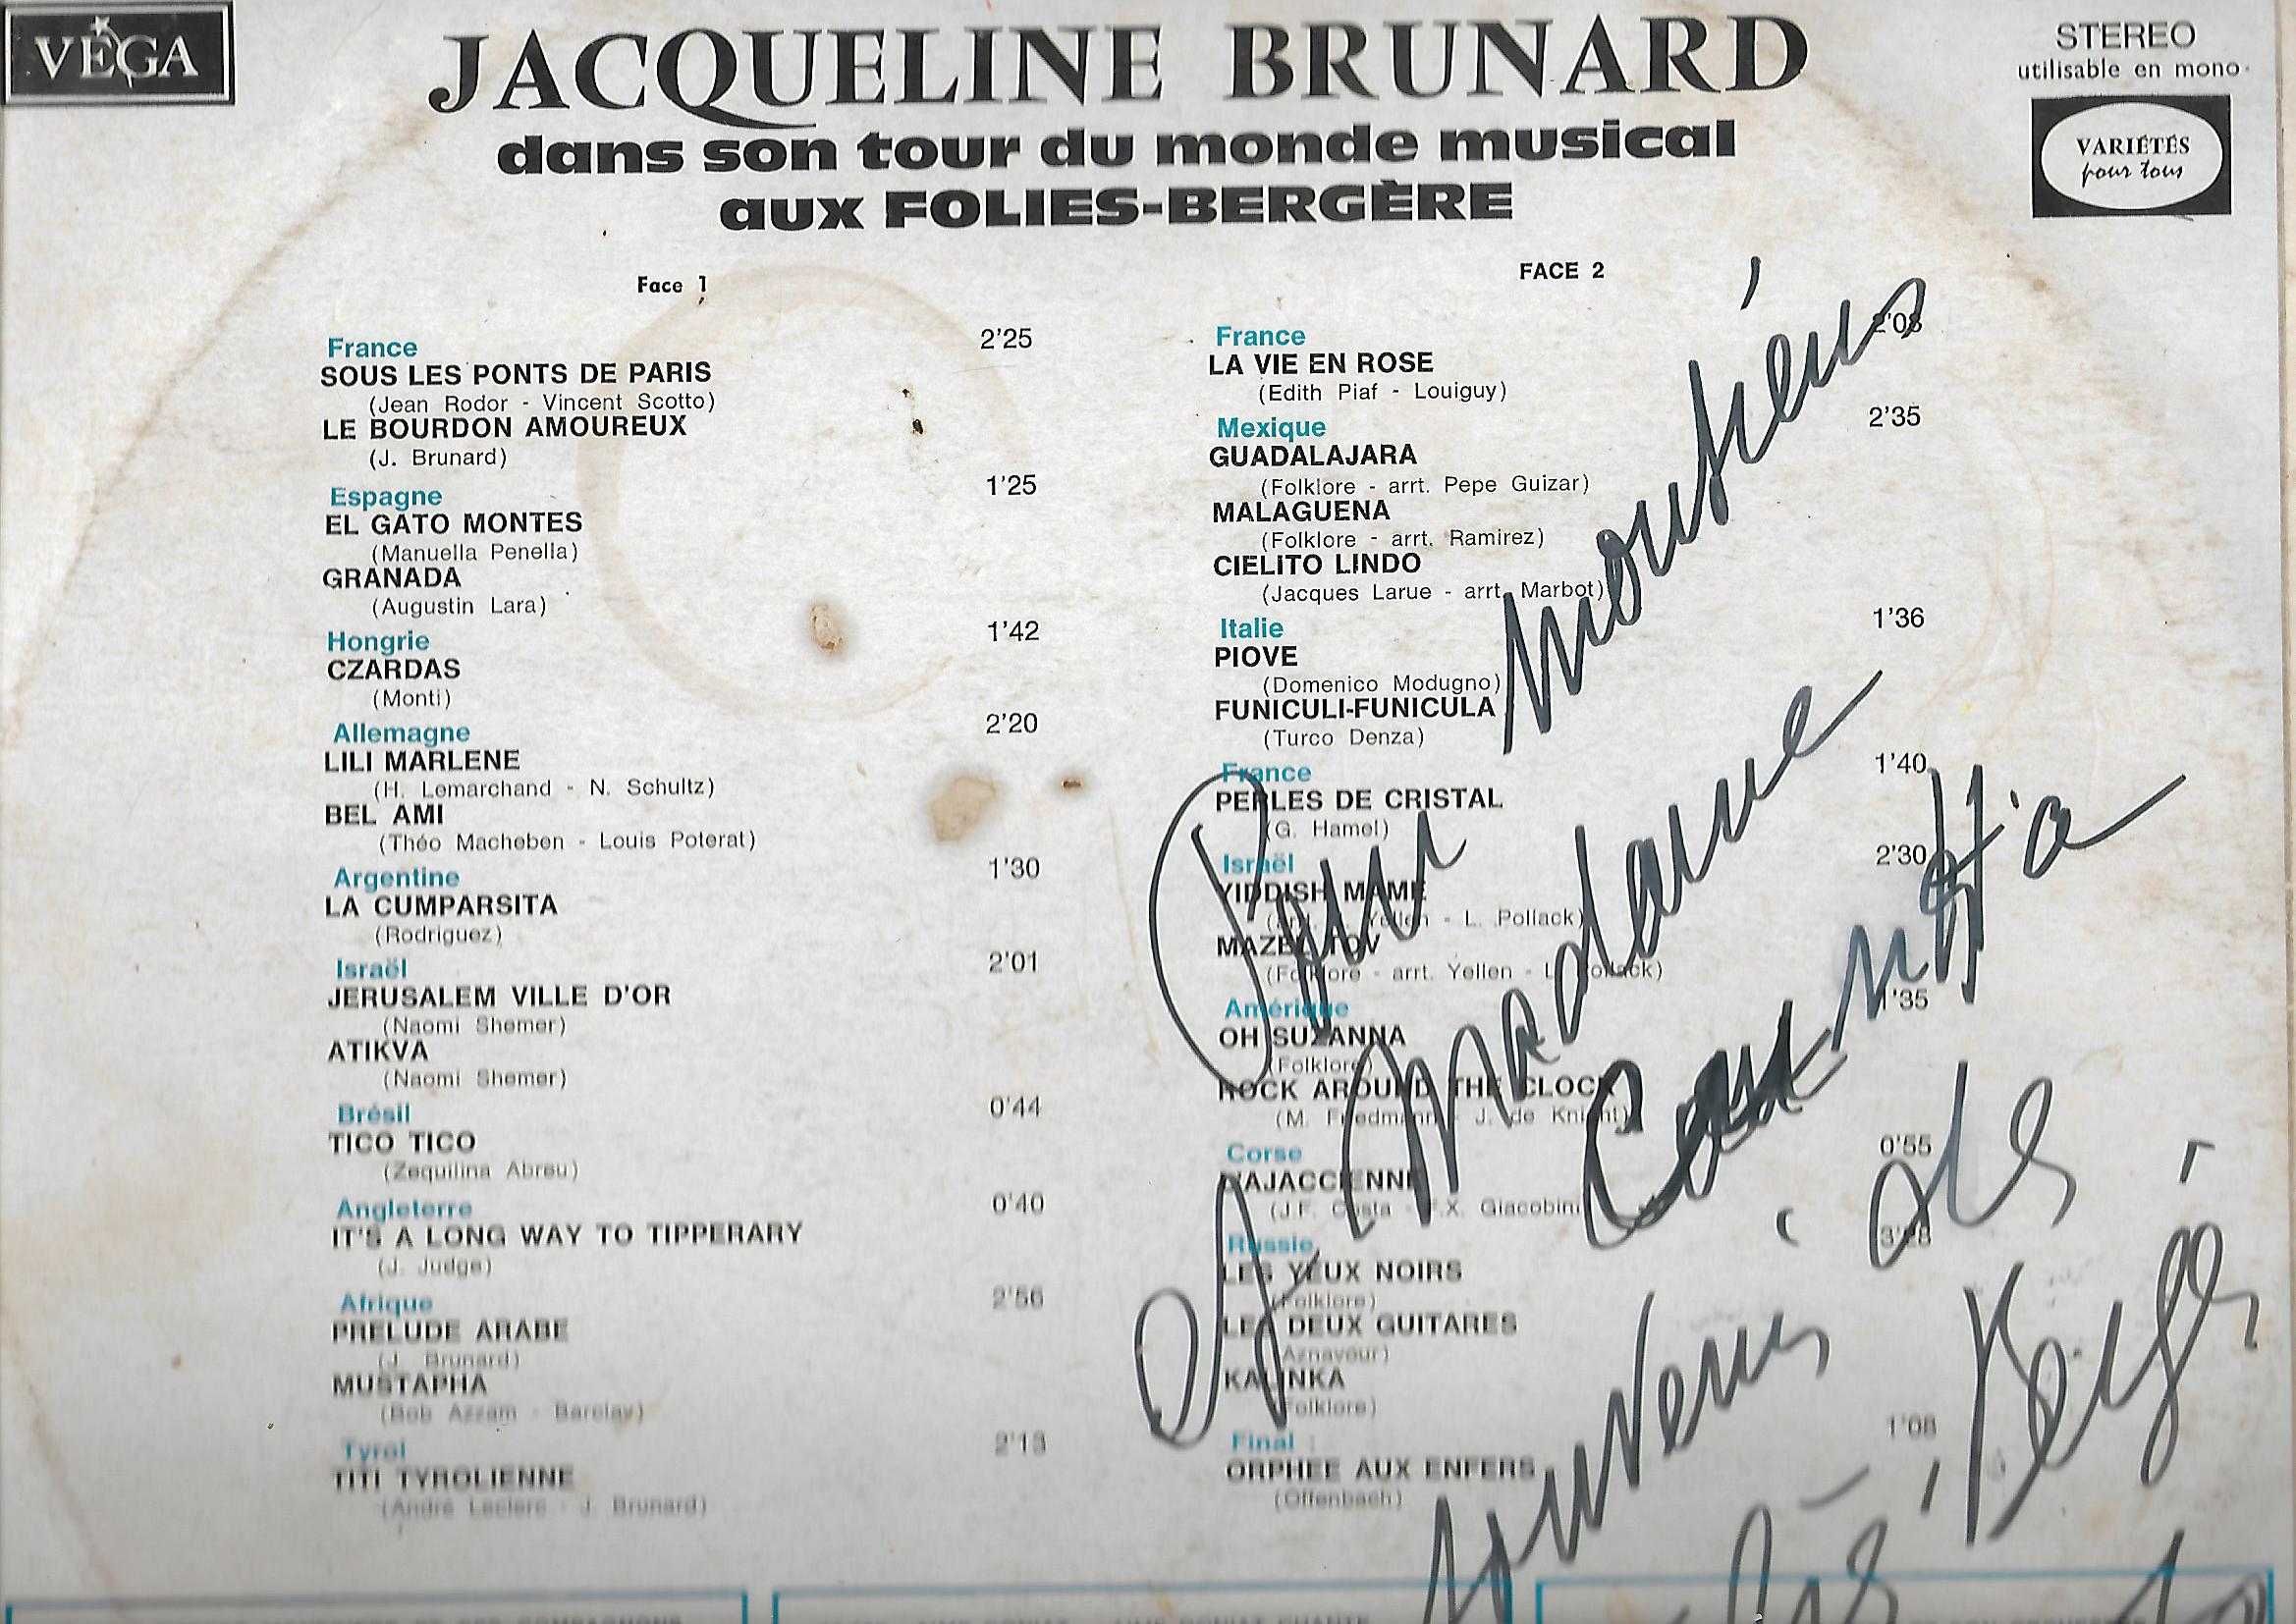 VÉGA
JACQUELINE BRUNARD
dans son tour du monde musical
aux FOLIES-BERGÈRE
STEREO
utilisable en mono
VARIÉTÉS
pour tous
Face 1
France 2'25
SOUS LES PONTS DE PARIS
(Jean Rodor - Vincent Scotto)
LE BOURDON AMOUREUX
(J. Brunard)
Espagne 1'25
EL GATO MONTES
(Manuella Penella)
GRANADA
(Augustin Lara)
Hongrie 1'42
CZARDAS
(Monti)
Allemagne 2'20
LILI MARLENE
(H. Lemarchand - N. Schultz)
BEL AMI
(Théo Macheben - Louis Poterat)
Argentine 1'30
LA CUMPARSITA
(Rodriguez)
Israël 2'01
JERUSALEM VILLE D'OR
(Naomi Shemer)
ATIKVA
(Naomi Shemer)
Brésil 0'44
TICO TICO
(Zequilina Abreu)
Angleterre 0'40
IT'S A LONG WAY TO TIPPERARY
(J. Judge)
Afrique 2'56
PRELUDE ARABE
(J. Brunard)
MUSTAPHA
(Bob Azzam - Barclay)
Tyrol 2'13
TITI TYROLIENNE
(André Leclerc - J. Brunard)
FACE 2
France 2'08
LA VIE EN ROSE
(Edith Piaf - Louiguy)
Mexique 2'35
GUADALAJARA
(Folklore - arrt. Pepe Guizar)
MALAGUENA
(Folklore - arrt. Ramirez)
CIELITO LINDO
(Jacques Larue - arrt. Marbot)
Italie 1'36
PIOVE
(Domenico Modugno)
FUNICULI-FUNICULA
(Turco Denza)
France 1'40
PERLES DE CRISTAL
(G. Hamel)
Israël 2'30
YIDDISH MAME
Yellen - L. Pollack)
MAZEL TOV
(Folklore - arrt. Yellen - L. Pollack)
Amérique 1'35
OH SUZANNA
(Folklore)
ROCK AROUND THE CLOCK
(M. Friedmann - J. de Knight)
Corse 0'55
L'AJACCIENNE
(J.F. Costa - F.X. Giacobini)
Russie
LES YEUX NOIRS
(Folklore)
LES DEUX GUITARES
(Aznavour)
KALINKA
(Folklore)
Final : 1'08
ORPHEE AUX ENFERS
(Offenbach)
Pour Monsieur
et Madame
souvenir des